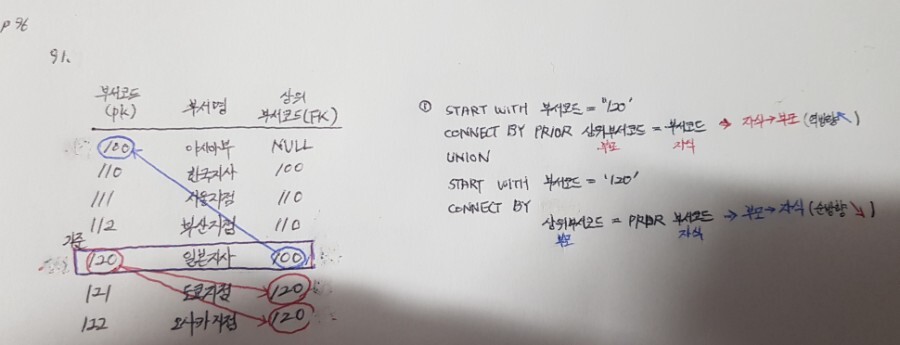 p 96
81.
부서코드 (PK) 부서명 상위 부서코드(FK)
100 아시아부 NULL
110 한국지사 100
111 서울지점 110
112 부산지점 110
기준
120 일본지사 100
121 도쿄지점 120
122 오사카지점 120
① START WITH 부서코드 = '120'
CONNECT BY PRIOR 상위부서코드 = 부서코드 → 자식→부모 (역방향↖)
부모 자식
UNION
START WITH 부서코드 = '120'
CONNECT BY
상위부서코드 = PRIOR 부서코드 → 부모→자식 (순방향↘)
부모 자식